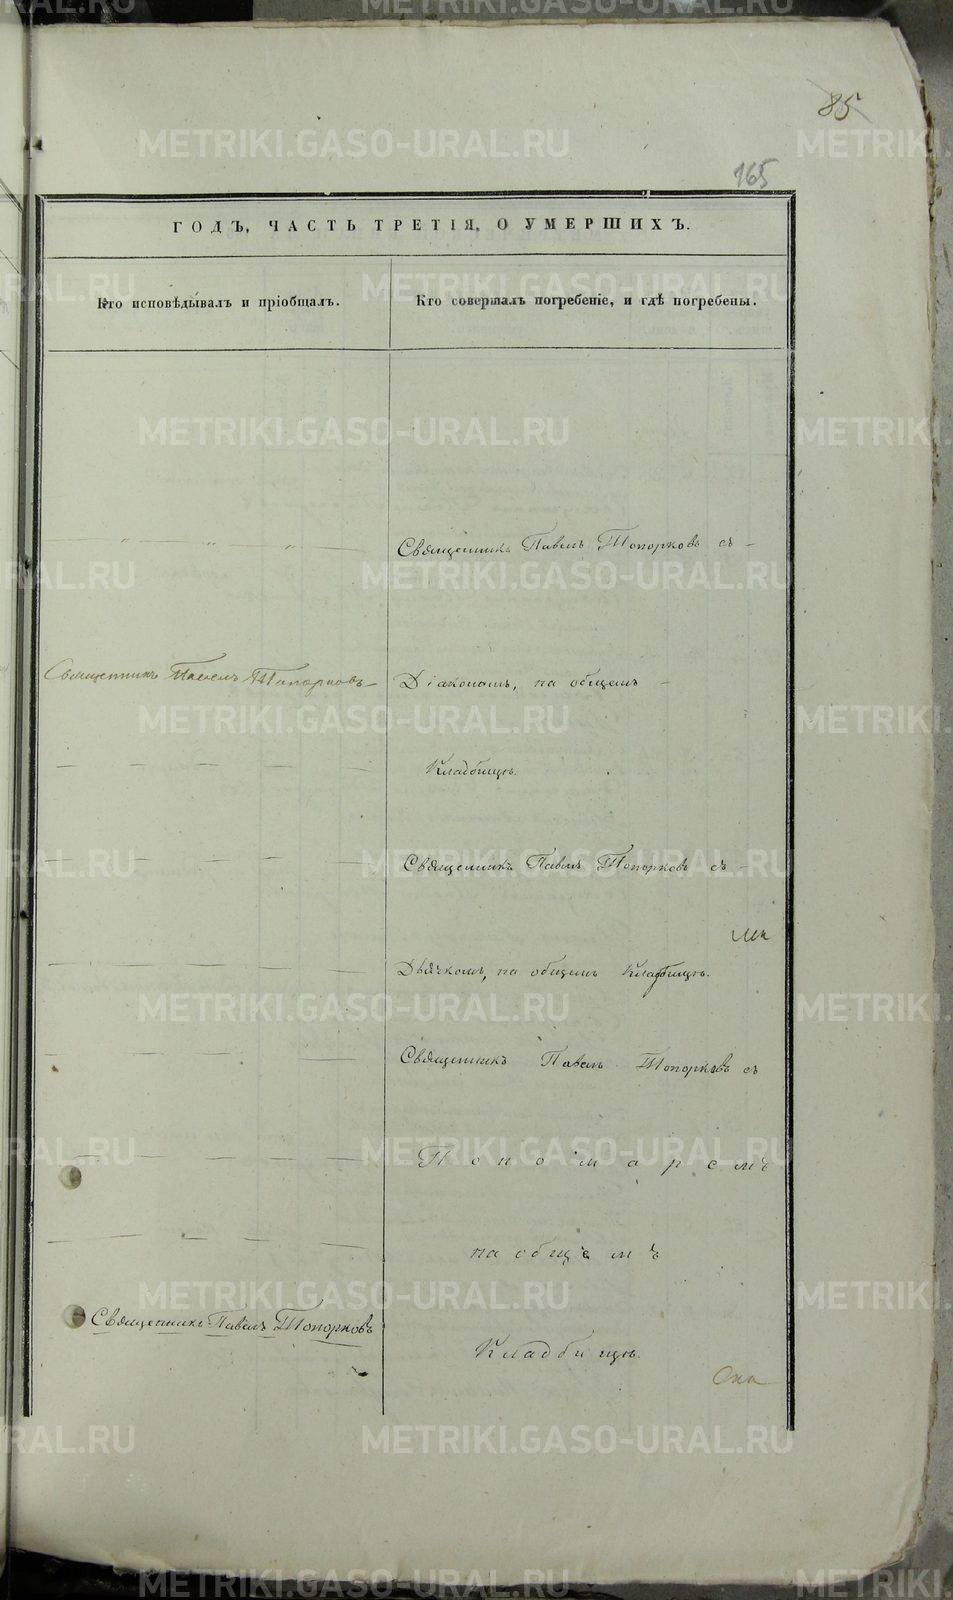 85
165
ГОДЪ, ЧАСТЬ ТРЕТІЯ, О УМЕРШИХЪ.
Кто исповѣдывалъ и пріобщалъ.
Кто совершалъ погребеніе, и гдѣ погребены.
Священникъ Павелъ Топорковъ съ
Священникъ Павелъ Топорковъ
Діакономъ, на общемъ
Кладбищѣ.
Священникъ Павелъ Топорковъ съ
Дьячкомъ, на общемъ Кладбищѣ.
Священникъ Павелъ Топорковъ съ
Пономаремъ
на общемъ
Священникъ Павелъ Топорковъ
Кладбищѣ.
METRIKI.GASO-URAL.RU